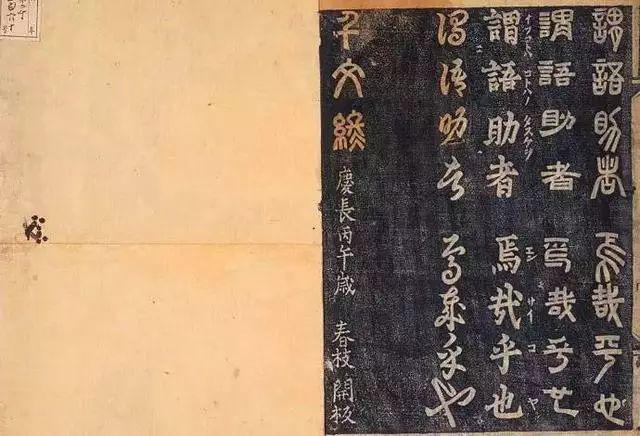 謂語助者 焉哉乎也
謂語助者 焉哉乎也
謂語助者 焉哉乎也
謂語助者 焉哉乎也
千文終 慶長丙午歳 春枝開板